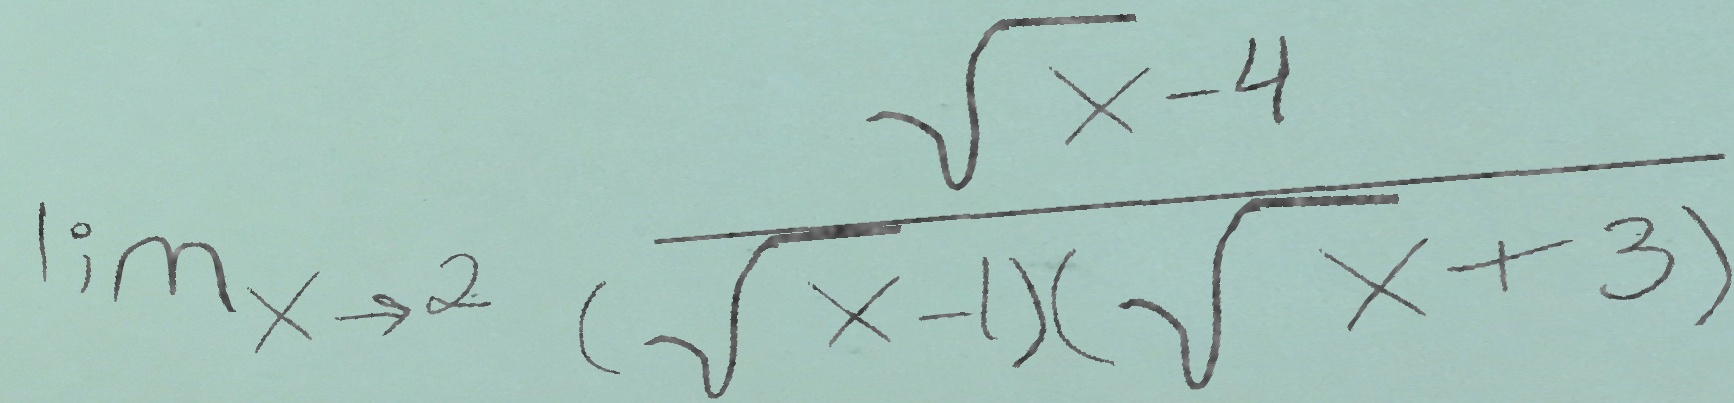 lim x→2 (√x - 4) / ((√x - 1)(√x + 3))